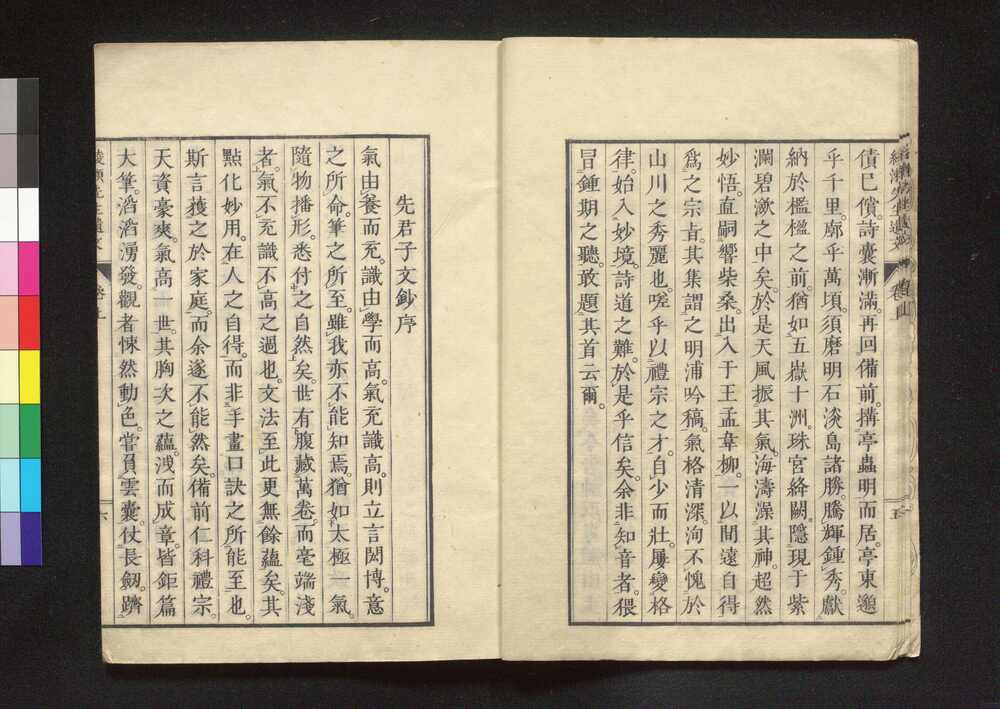 債已償。詩囊漸滿。再回備前。搆亭蟲明而居。亭東邈
乎千里。廓乎萬頃。須磨明石淡島諸勝。騰輝鍾秀。獻
納於檻楹之前。猶如五嶽十洲。珠宮絳闕。隱現于紫
瀾碧漵之中矣。於是天風振其氣。海濤澡其神。超然
妙悟。直嗣響柴桑。出入于王孟韋柳。一以閒遠自得
爲之宗旨。其集謂之明浦吟稿。氣格清深。洵不愧於
山川之秀麗也。嗟乎以禮宗之才。自少而壯。屢變格
律。始入妙境。詩道之難。於是乎信矣。余非知音者。猥
冒鍾期之聽。敢題其首云爾。
五
先君子文鈔序
氣由養而充。識由學而高。氣充識高。則立言閎博。意
之所命。筆之所至。雖我亦不能知焉。猶如太極一氣。
隨物播形。悉付之自然矣。世有腹藏萬卷。而毫端淺
者。氣不充識不高之過也。文法至此更無餘蘊矣。其
點化妙用。在人之自得。而非手畫口訣之所能至也。
斯言獲之於家庭。而余遂不能然矣。備前仁科禮宗。
天資豪爽。氣高一世。其胸次之蘊。溅而成章。皆鉅篇
大筆。滔滔湧發。觀者悚然動色。嘗負雲囊。仗長劒。躋
六